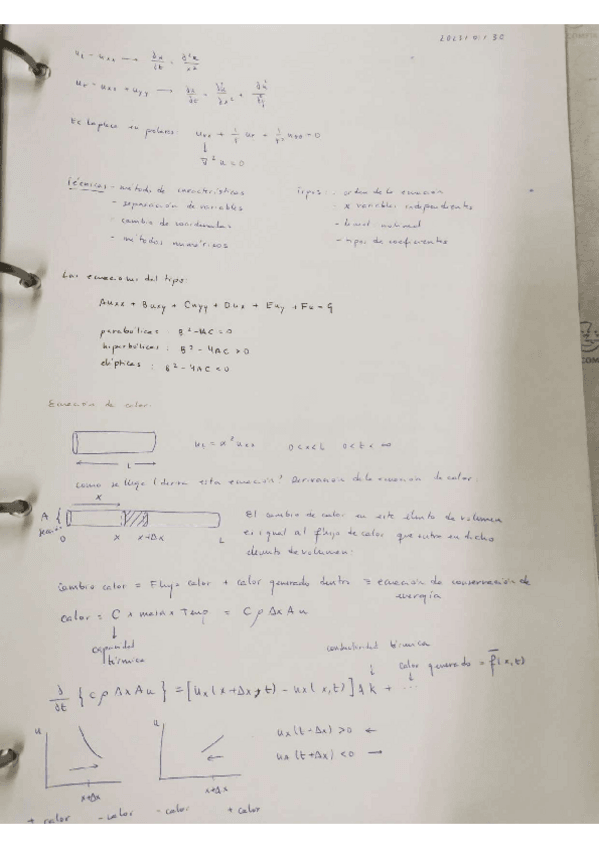 u_t = u_xx → ∂u/∂t = ∂²u/∂x²
u_t = u_xx + u_yy → ∂u/∂t = ∂²u/∂x² +
Laplace en polares: u_rr + 1/r u_r + 1/r² u_θθ = 0
↓
∇²u = 0
Técnicas: - método de características
- separación de variables
- cambio de coordenadas
- métodos numéricos
Tipos: - orden de la ecuación
- x variables independientes
- lineal
- tipos de coeficientes
Las ecuaciones del tipo:
Auxx + Buxy + Cuyy + Dux + Euy + Fu = G
parabólicas : B²-4AC = 0
hiperbólicas : B² - 4AC > 0
elípticas : B² - 4AC < 0
Ecuación de calor:
L
0<x<L 0<t<∞
Como se llega (deriva esta ecuación? Derivación de la ecuación de calor:
x
A {
0 x x+Δx L
El cambio de calor en este elemento de volumen
es igual al flujo de calor que entra en dicho
elemento de volumen:
Cambio calor = Flujo calor + calor generado dentro = ecuación de conservación de
energía
Calor = C x masa x Temp = C ρ Δx A u
↓
capacidad
térmica
conductividad térmica
calor generado = f(x,t)
∂/∂t { C ρ Δx A u } = [ux(x+Δx,t) - ux(x,t)] A k + ...
u
x+Δx
u
x+Δx
ux(t+Δx) > 0 ←
ux(t+Δx) < 0 →
+ calor - calor - calor + calor